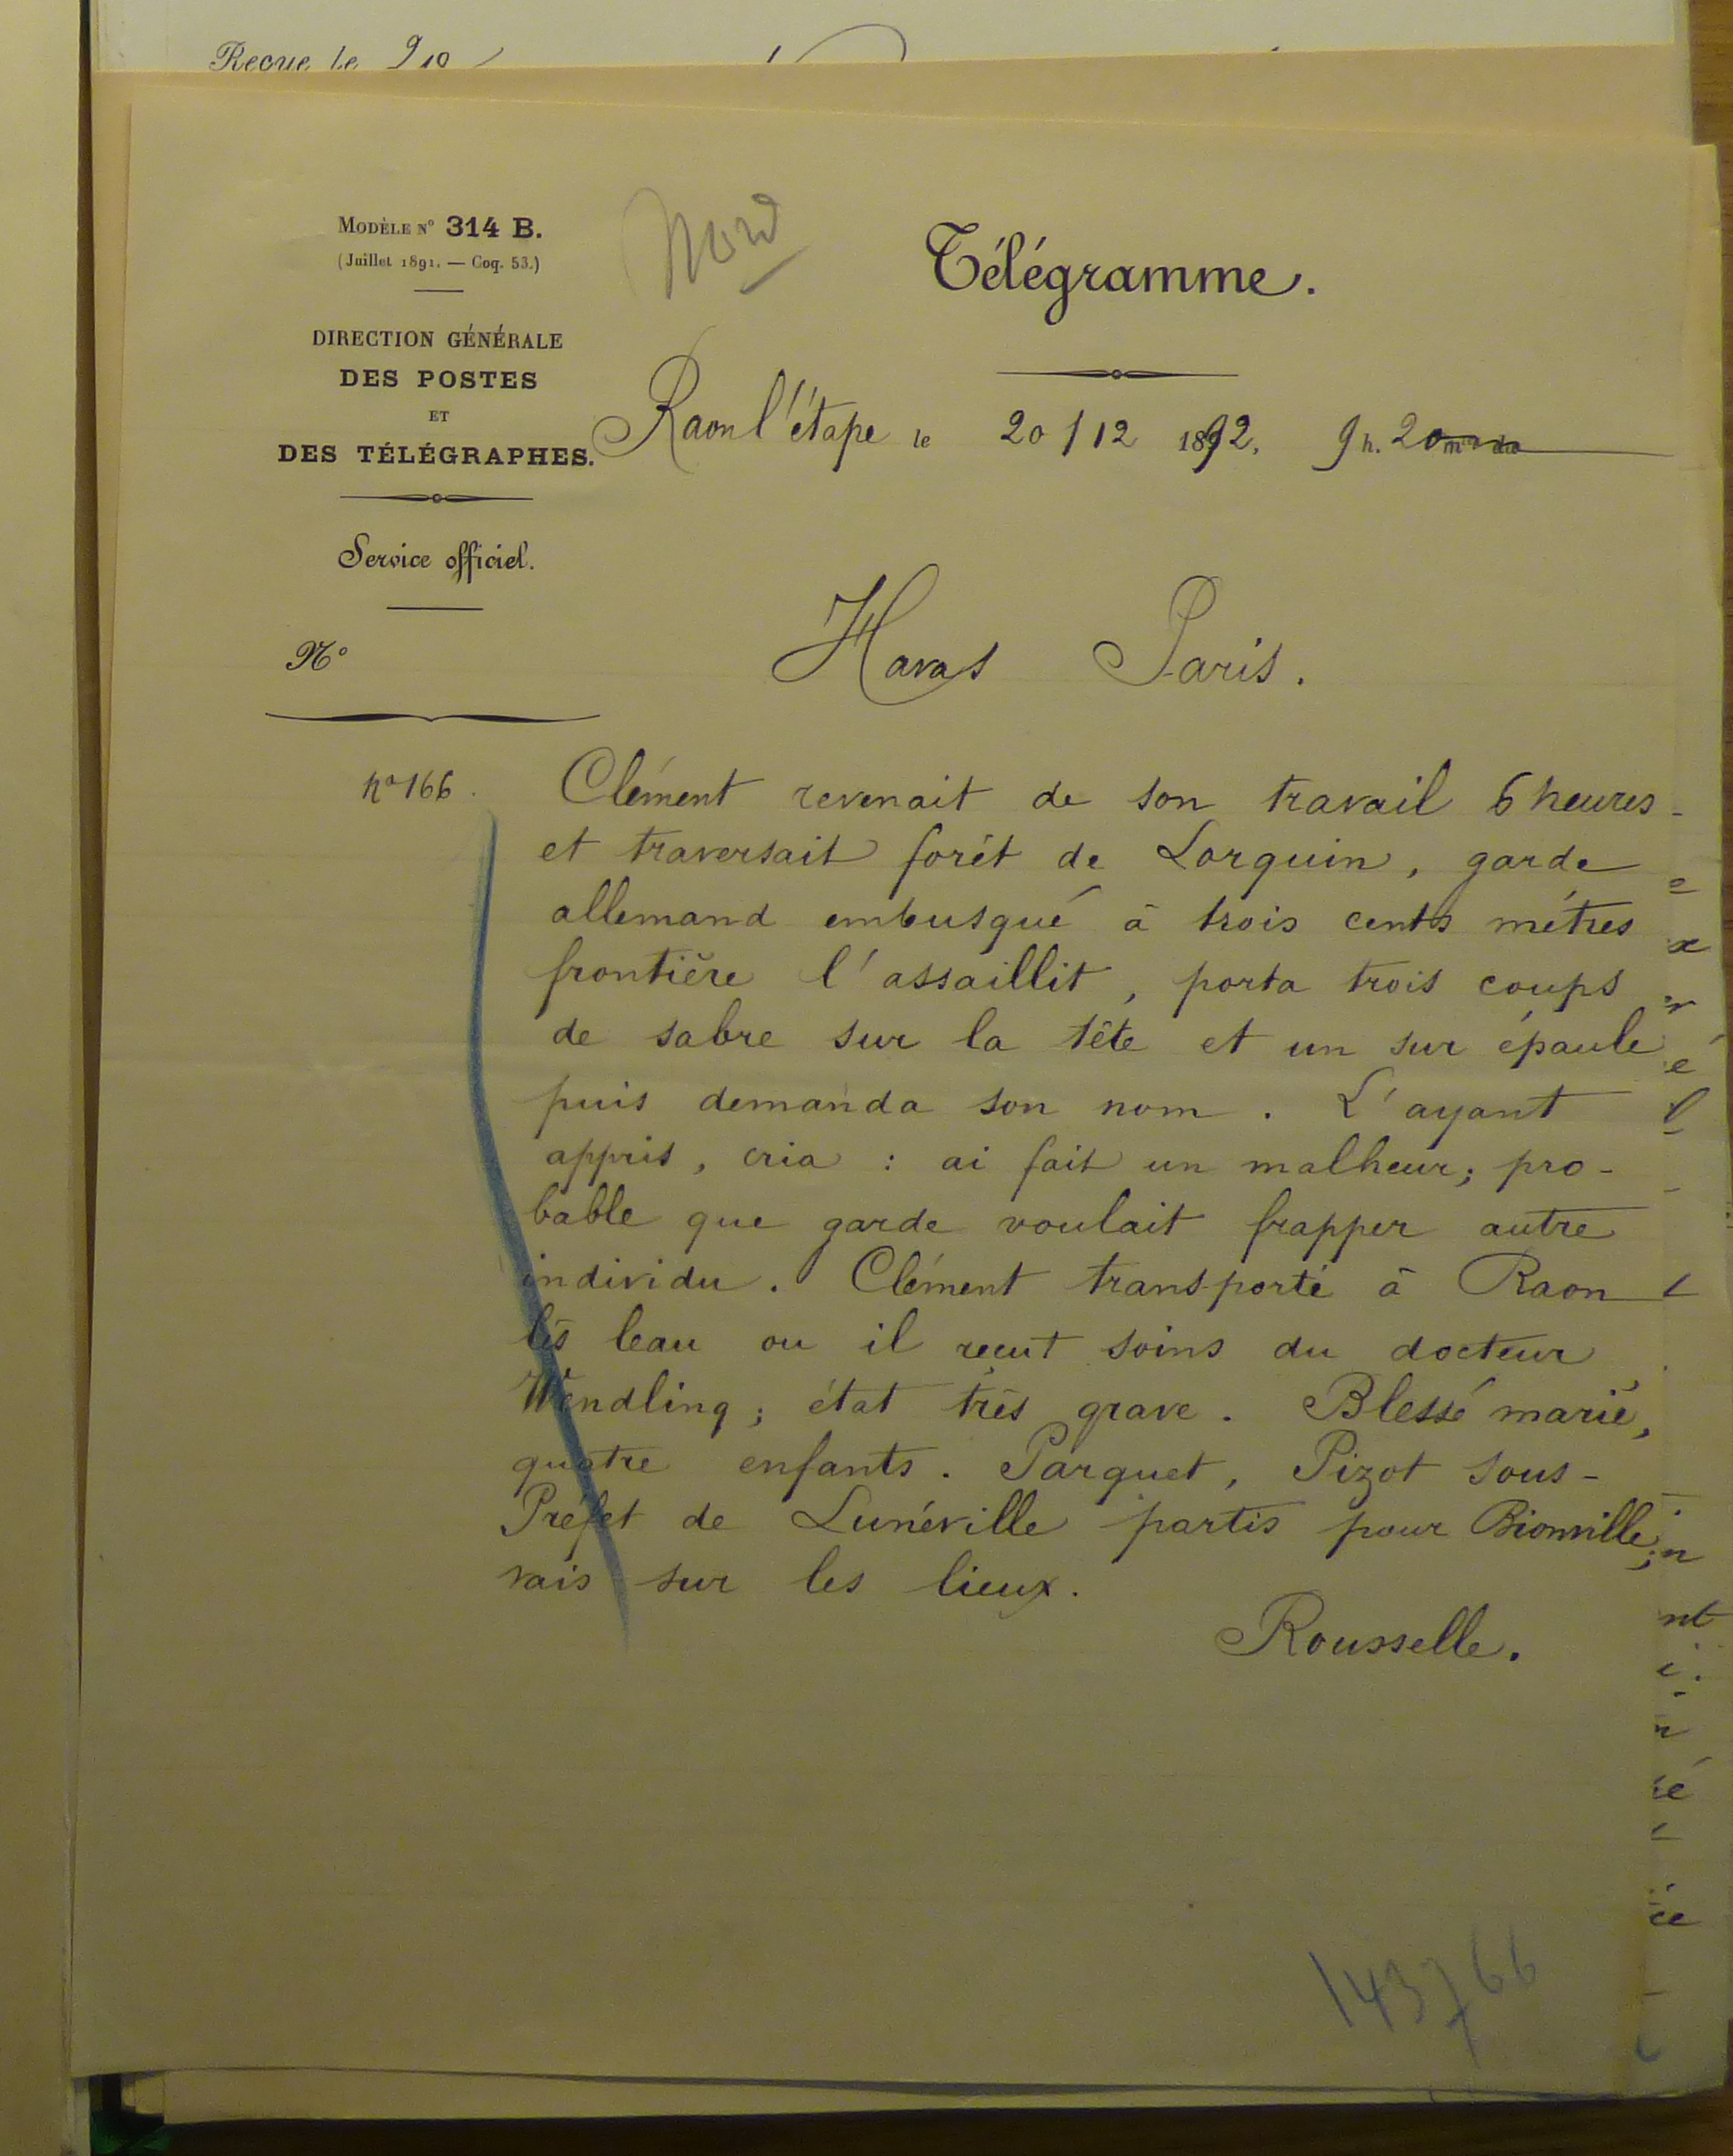 Reçue le 9 10
Modèle n° 314 B.
(Juillet 1891. — Coq. 53.)
Nord
Télégramme.
DIRECTION GÉNÉRALE
DES POSTES
ET
DES TÉLÉGRAPHES.
Raon l'étape le 20/12 1892, 9 h. 20
Service officiel.
N°
Havas Paris.
n° 166.
Clément revenait de son travail 6 heures
et traversait forêt de Lorquin, garde
allemand embusqué à trois cents mètres
frontière l'assaillit, porta trois coups
de sabre sur la tête et un sur épaule
puis demanda son nom. L'ayant
appris, cria : ai fait un malheur; pro-
bable que garde voulait frapper autre
individu. Clément transporté à Raon
lès leau ou il reçut soins du docteur
Wendling; état très grave. Blessé marié,
quatre enfants. Parquet, Pizot sous-
Préfet de Lunéville partis pour Bionville;
vais sur les lieux.
Rousselle.
143766